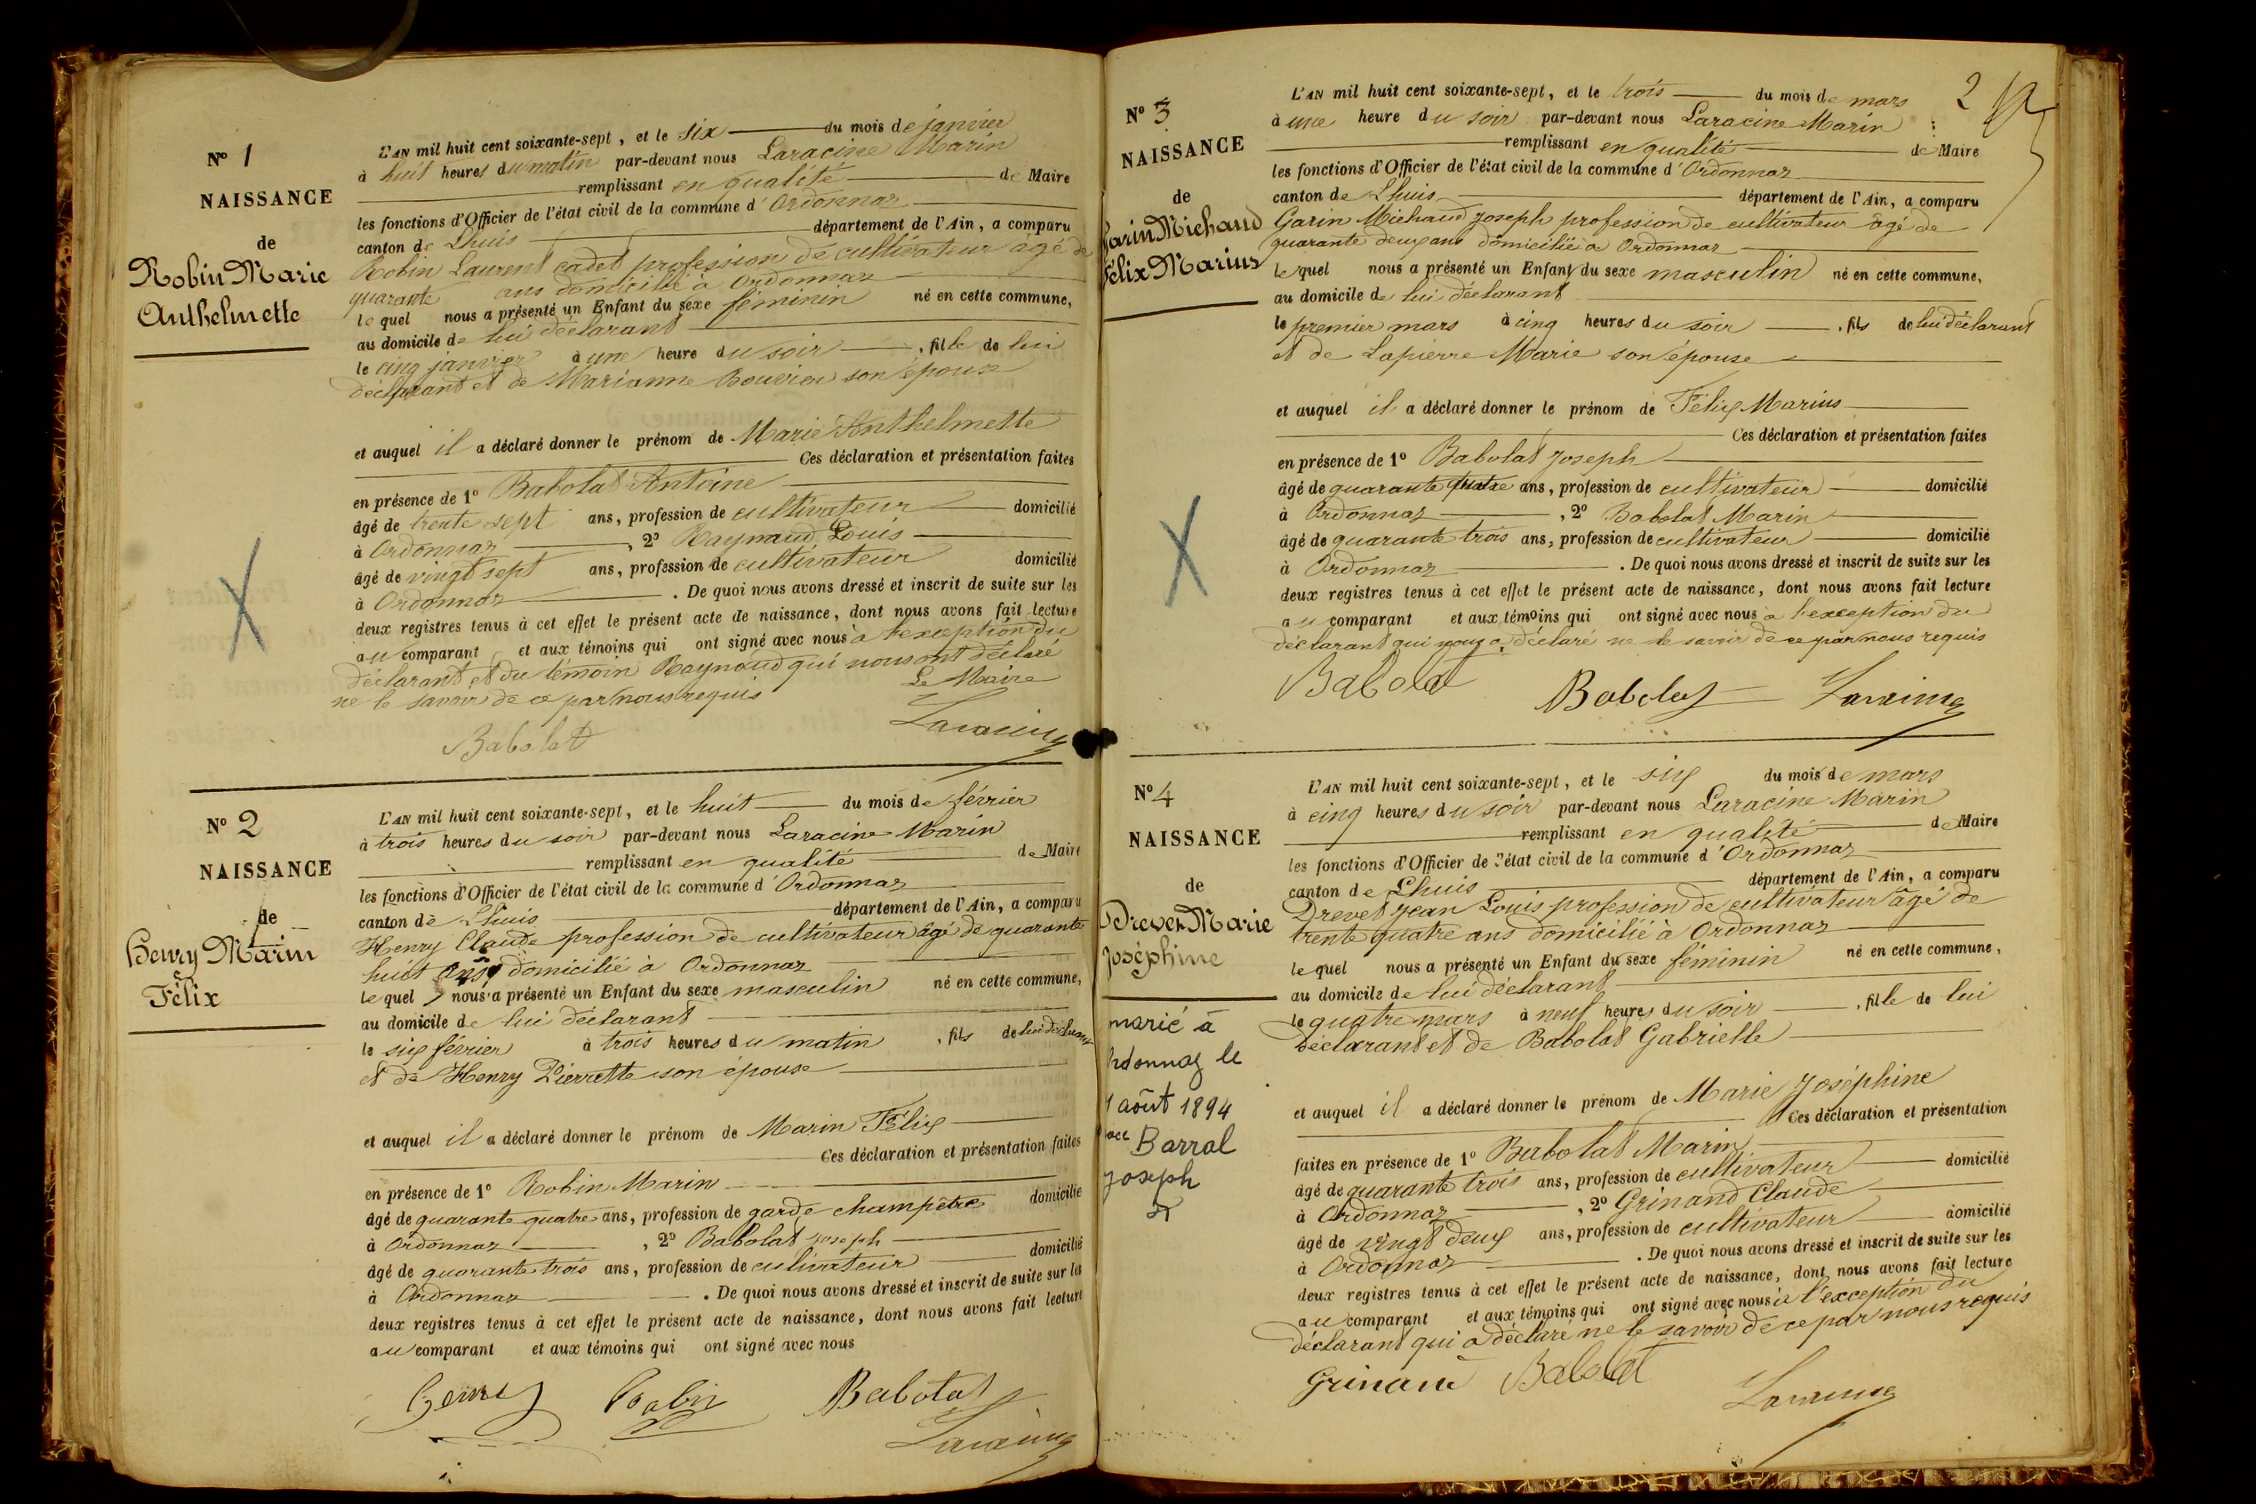 N° 1
NAISSANCE
de
Robin Marie
Anthelmette
L'AN mil huit cent soixante-sept, et le six du mois de janvier
à huit heures du matin par-devant nous Laracine Marin
remplissant en qualité de Maire
les fonctions d'Officier de l'état civil de la commune d'Ordonnaz
canton de Lhuis département de l'Ain, a comparu
Robin Laurent cadet profession de cultivateur âgé de
quarante ans domicilié à Ordonnaz
lequel nous a présenté un Enfant du sexe féminin né en cette commune,
au domicile de lui déclarant
le cinq janvier à une heure du soir, fille de lui
déclarant et de Marianne Bouvier son épouse
et auquel il a déclaré donner le prénom de Marie Anthelmette
Ces déclaration et présentation faites
en présence de 1° Babolat Antoine
âgé de trente sept ans, profession de cultivateur domicilié
à Ordonnaz, 2° Raynaud Louis
âgé de vingt sept ans, profession de cultivateur domicilié
à Ordonnaz. De quoi nous avons dressé et inscrit de suite sur les
deux registres tenus à cet effet le présent acte de naissance, dont nous avons fait lecture
au comparant et aux témoins qui ont signé avec nous à l'exception du
déclarant et du témoin Raynaud qui nous ont déclaré
ne le savoir de ce par nous requis
Le Maire
Babolat Laracine
N° 2
NAISSANCE
de
Henry Marin
Félix
L'AN mil huit cent soixante-sept, et le huit du mois de février
à trois heures du soir par-devant nous Laracine Marin
remplissant en qualité de Maire
les fonctions d'Officier de l'état civil de la commune d'Ordonnaz
canton de Lhuis département de l'Ain, a comparu
Henry Claude profession de cultivateur âgé de quarante
huit ans domicilié à Ordonnaz
lequel nous a présenté un Enfant du sexe masculin né en cette commune,
au domicile de lui déclarant
le six février à trois heures du matin, fils de lui déclarant
et de Henry Pierrette son épouse
et auquel il a déclaré donner le prénom de Marin Félix
Ces déclaration et présentation faites
en présence de 1° Robin Marin
âgé de quarante quatre ans, profession de garde champêtre domicilié
à Ordonnaz, 2° Babolat Joseph
âgé de quarante trois ans, profession de cultivateur domicilié
à Ordonnaz. De quoi nous avons dressé et inscrit de suite sur les
deux registres tenus à cet effet le présent acte de naissance, dont nous avons fait lecture
au comparant et aux témoins qui ont signé avec nous
Henry Robin Babolat
Laracine
2
N° 3
NAISSANCE
de
Garin Michaud
Félix Marius
L'AN mil huit cent soixante-sept, et le trois du mois de mars
à une heure du soir par-devant nous Laracine Marin
remplissant en qualité de Maire
les fonctions d'Officier de l'état civil de la commune d'Ordonnaz
canton de Lhuis département de l'Ain, a comparu
Garin Michaud Joseph profession de cultivateur âgé de
quarante deux ans domicilié à Ordonnaz
lequel nous a présenté un Enfant du sexe masculin né en cette commune,
au domicile de lui déclarant
le premier mars à cinq heures du soir, fils de lui déclarant
et de Lapierre Marie son épouse
et auquel il a déclaré donner le prénom de Félix Marius
Ces déclaration et présentation faites
en présence de 1° Babolat Joseph
âgé de quarante quatre ans, profession de cultivateur domicilié
à Ordonnaz, 2° Babolat Marin
âgé de quarante trois ans, profession de cultivateur domicilié
à Ordonnaz. De quoi nous avons dressé et inscrit de suite sur les
deux registres tenus à cet effet le présent acte de naissance, dont nous avons fait lecture
au comparant et aux témoins qui ont signé avec nous à l'exception du
déclarant qui nous a déclaré ne le savoir de ce par nous requis
Babolat Babolat Laracine
N° 4
NAISSANCE
de
Drevet Marie
Joséphine
marié à
Ordonnaz le
août 1894
avec Barral
Joseph
L'AN mil huit cent soixante-sept, et le six du mois de mars
à cinq heures du soir par-devant nous Laracine Marin
remplissant en qualité de Maire
les fonctions d'Officier de l'état civil de la commune d'Ordonnaz
canton de Lhuis département de l'Ain, a comparu
Drevet Jean Louis profession de cultivateur âgé de
trente quatre ans domicilié à Ordonnaz
lequel nous a présenté un Enfant du sexe féminin né en cette commune,
au domicile de lui déclarant
le quatre mars à neuf heures du soir, fille de lui
déclarant et de Babolat Gabrielle
et auquel il a déclaré donner le prénom de Marie Joséphine
Ces déclaration et présentation
faites en présence de 1° Babolat Marin
âgé de quarante trois ans, profession de cultivateur domicilié
à Ordonnaz, 2° Grinand Claude
âgé de vingt deux ans, profession de cultivateur domicilié
à Ordonnaz. De quoi nous avons dressé et inscrit de suite sur les
deux registres tenus à cet effet le présent acte de naissance, dont nous avons fait lecture
au comparant et aux témoins qui ont signé avec nous à l'exception du
déclarant qui a déclaré ne le savoir de ce par nous requis
Grinand Babolat Laracine